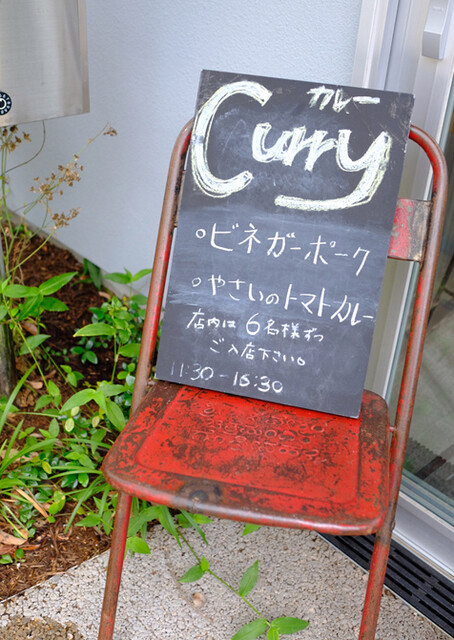 カレー
Curry
○ビネガーポーク
○やさいのトマトカレー
店内は6名様ずつ
ご入店下さい。
11:30-16:30